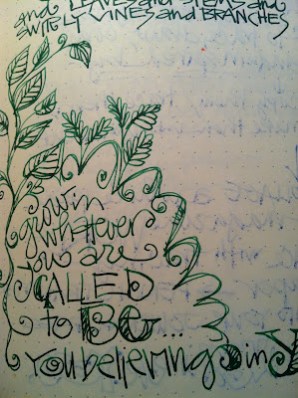 and LEAVES and STEMS and
and WIRELY VINES and BRANCHES
grow in
whatever
you are
CALLED
to BE...
You believering in